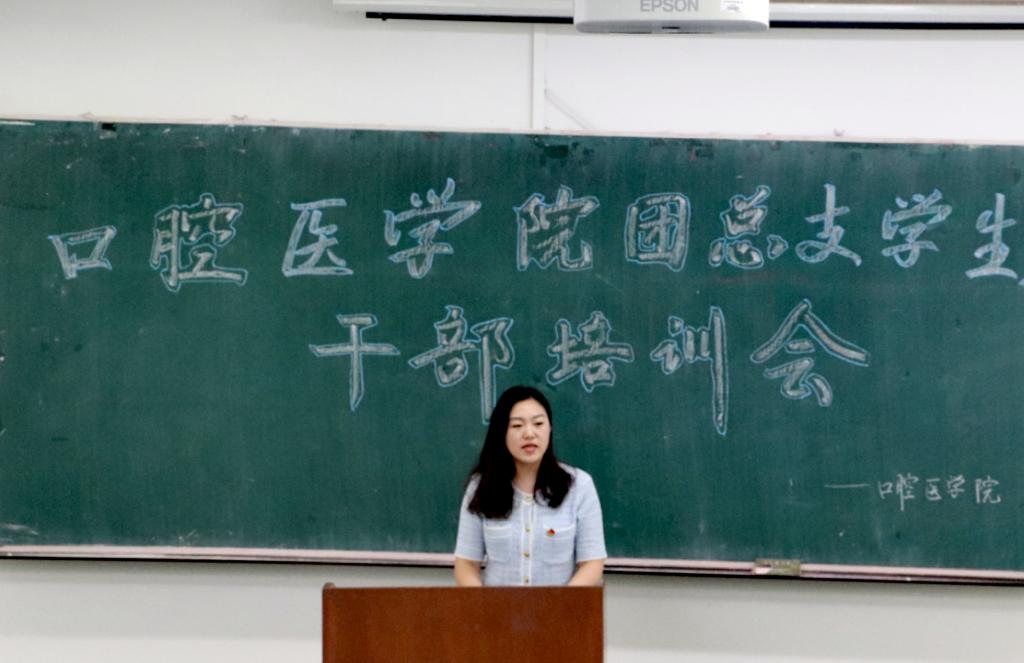 EPSON
口腔医学院团总支学生
干部培训会
一口腔医学院